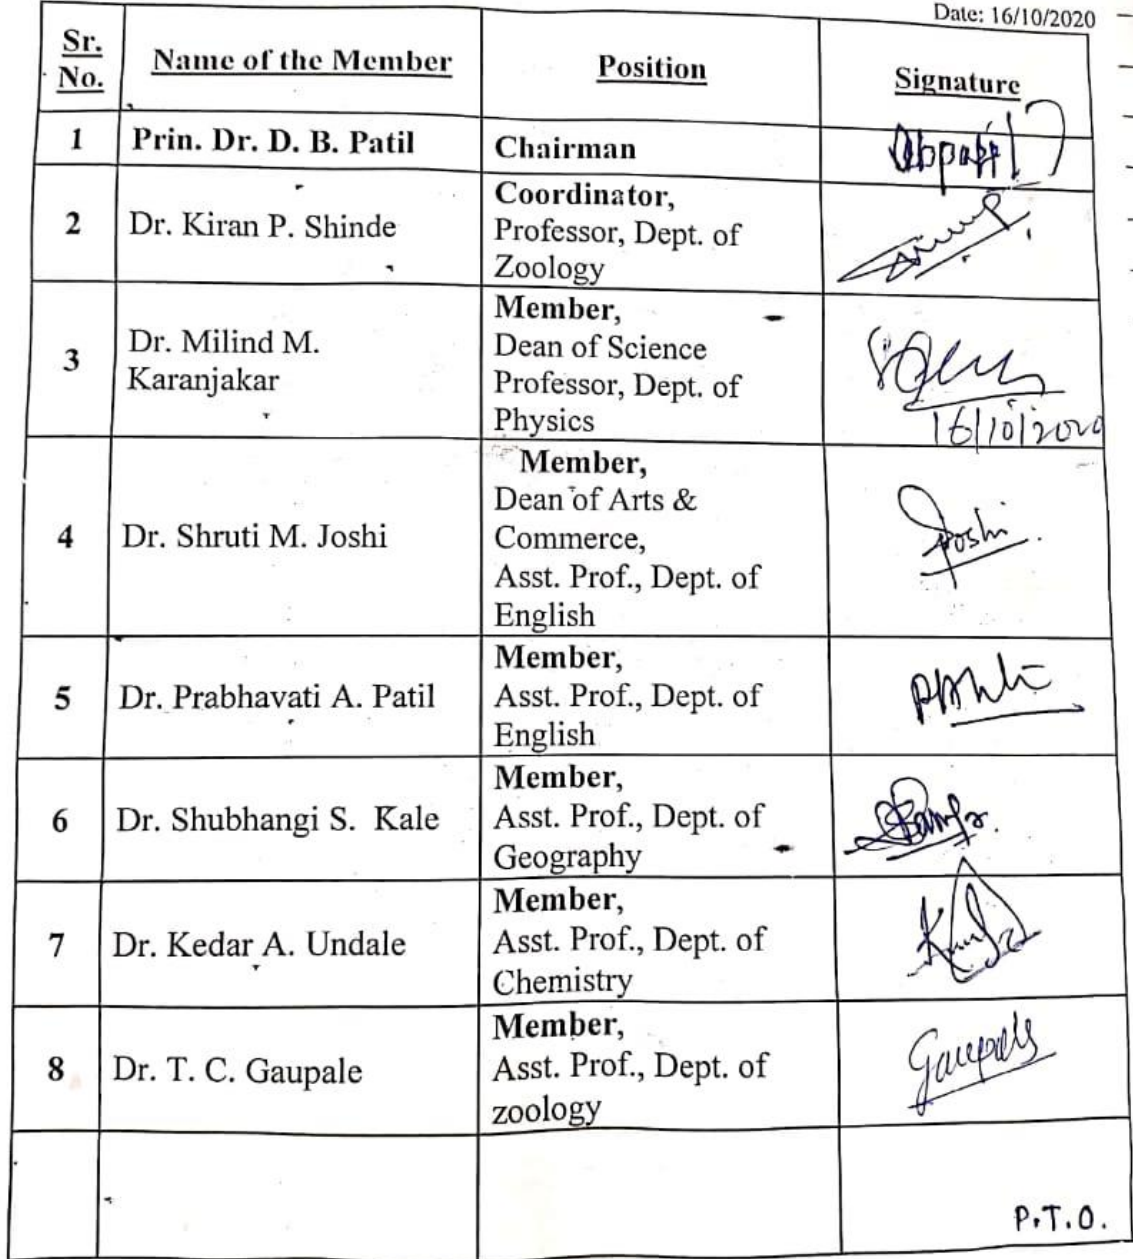 Date: 16/10/2020
Sr. No. Name of the Member Position Signature
1 Prin. Dr. D. B. Patil Chairman Dbpatil
2 Dr. Kiran P. Shinde Coordinator,
Professor, Dept. of
Zoology
3 Dr. Milind M.
Karanjakar Member,
Dean of Science
Professor, Dept. of
Physics
16/10/2020
4 Dr. Shruti M. Joshi Member,
Dean of Arts &
Commerce,
Asst. Prof., Dept. of
English
Joshi
5 Dr. Prabhavati A. Patil Member,
Asst. Prof., Dept. of
English
6 Dr. Shubhangi S. Kale Member,
Asst. Prof., Dept. of
Geography
7 Dr. Kedar A. Undale Member,
Asst. Prof., Dept. of
Chemistry
8 Dr. T. C. Gaupale Member,
Asst. Prof., Dept. of
zoology
Gaupale
P.T.O.